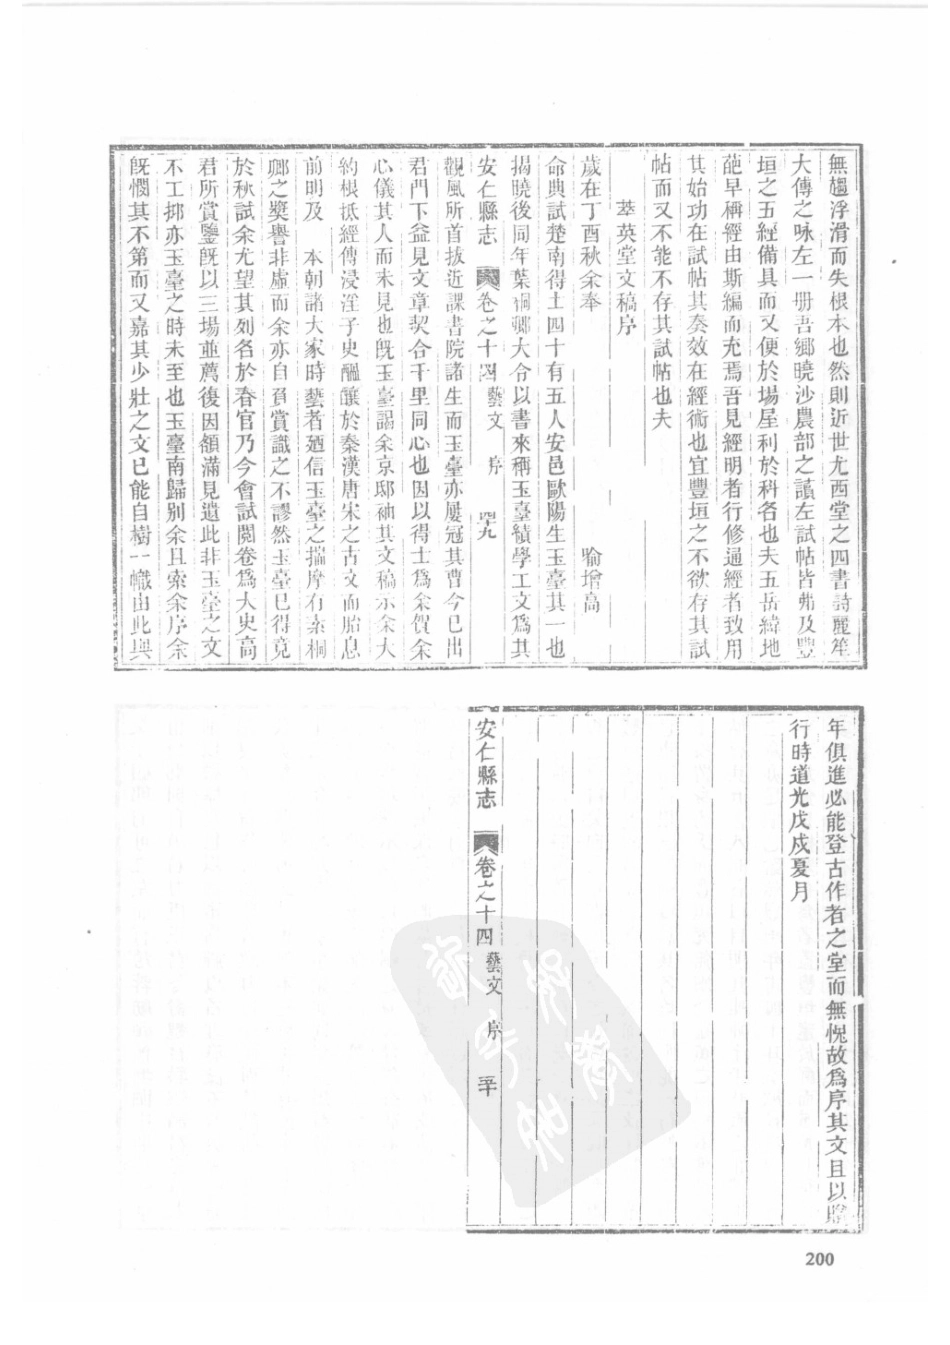 無趨浮滑而失根本也然則近世尤西堂之四書詩麗笙
大傳之咏左一册吾鄉曉沙農部之讀左試帖皆弗及豐
垣之五經備具而又便於場屋利於科名也夫五岳緯地
葩早櫛經由斯編而充焉吾見經明者行修通經者致用
其始功在試帖其奏效在經術也宜豐垣之不欲存其試
帖而又不能不存其試帖也夫
萃英堂文稿序
喻增高
歲在丁酉秋余奉
命典試楚南得士四十有五人安邑歐陽生玉臺其一也
揭曉後同年葉桐鄉大令以書來稱玉臺績學工文爲其
安仁縣志 卷之十四 藝文 序 四十九
觀風所首拔近課書院諸生而玉臺亦屢冠其曹今已出
君門下益見文章契合千里同心也因以得士爲余賀余
心儀其人而未見也旣玉臺謁余京邸袖其文稿示余大
約根抵經傳浸淫子史醞釀於秦漢唐宋之古文而胎息
前明及 本朝諸大家時藝者廼信玉臺之揣摩有素桐
鄉之獎譽非虛而余亦自負賞識之不謬然玉臺已得竟
於秋試余尤望其列名於春官乃今會試閱卷爲大史高
君所賞鑒旣以三場並薦後因額滿見遺此非玉臺之文
不工抑亦玉臺之時未至也玉臺南歸别余且索余序余
旣憫其不第而又嘉其少壯之文已能自樹一幟由此與
年俱進必能登古作者之堂而無愧故爲序其文且以贈
行時道光戊戌夏月
安仁縣志 卷之十四 藝文 序 五十
200